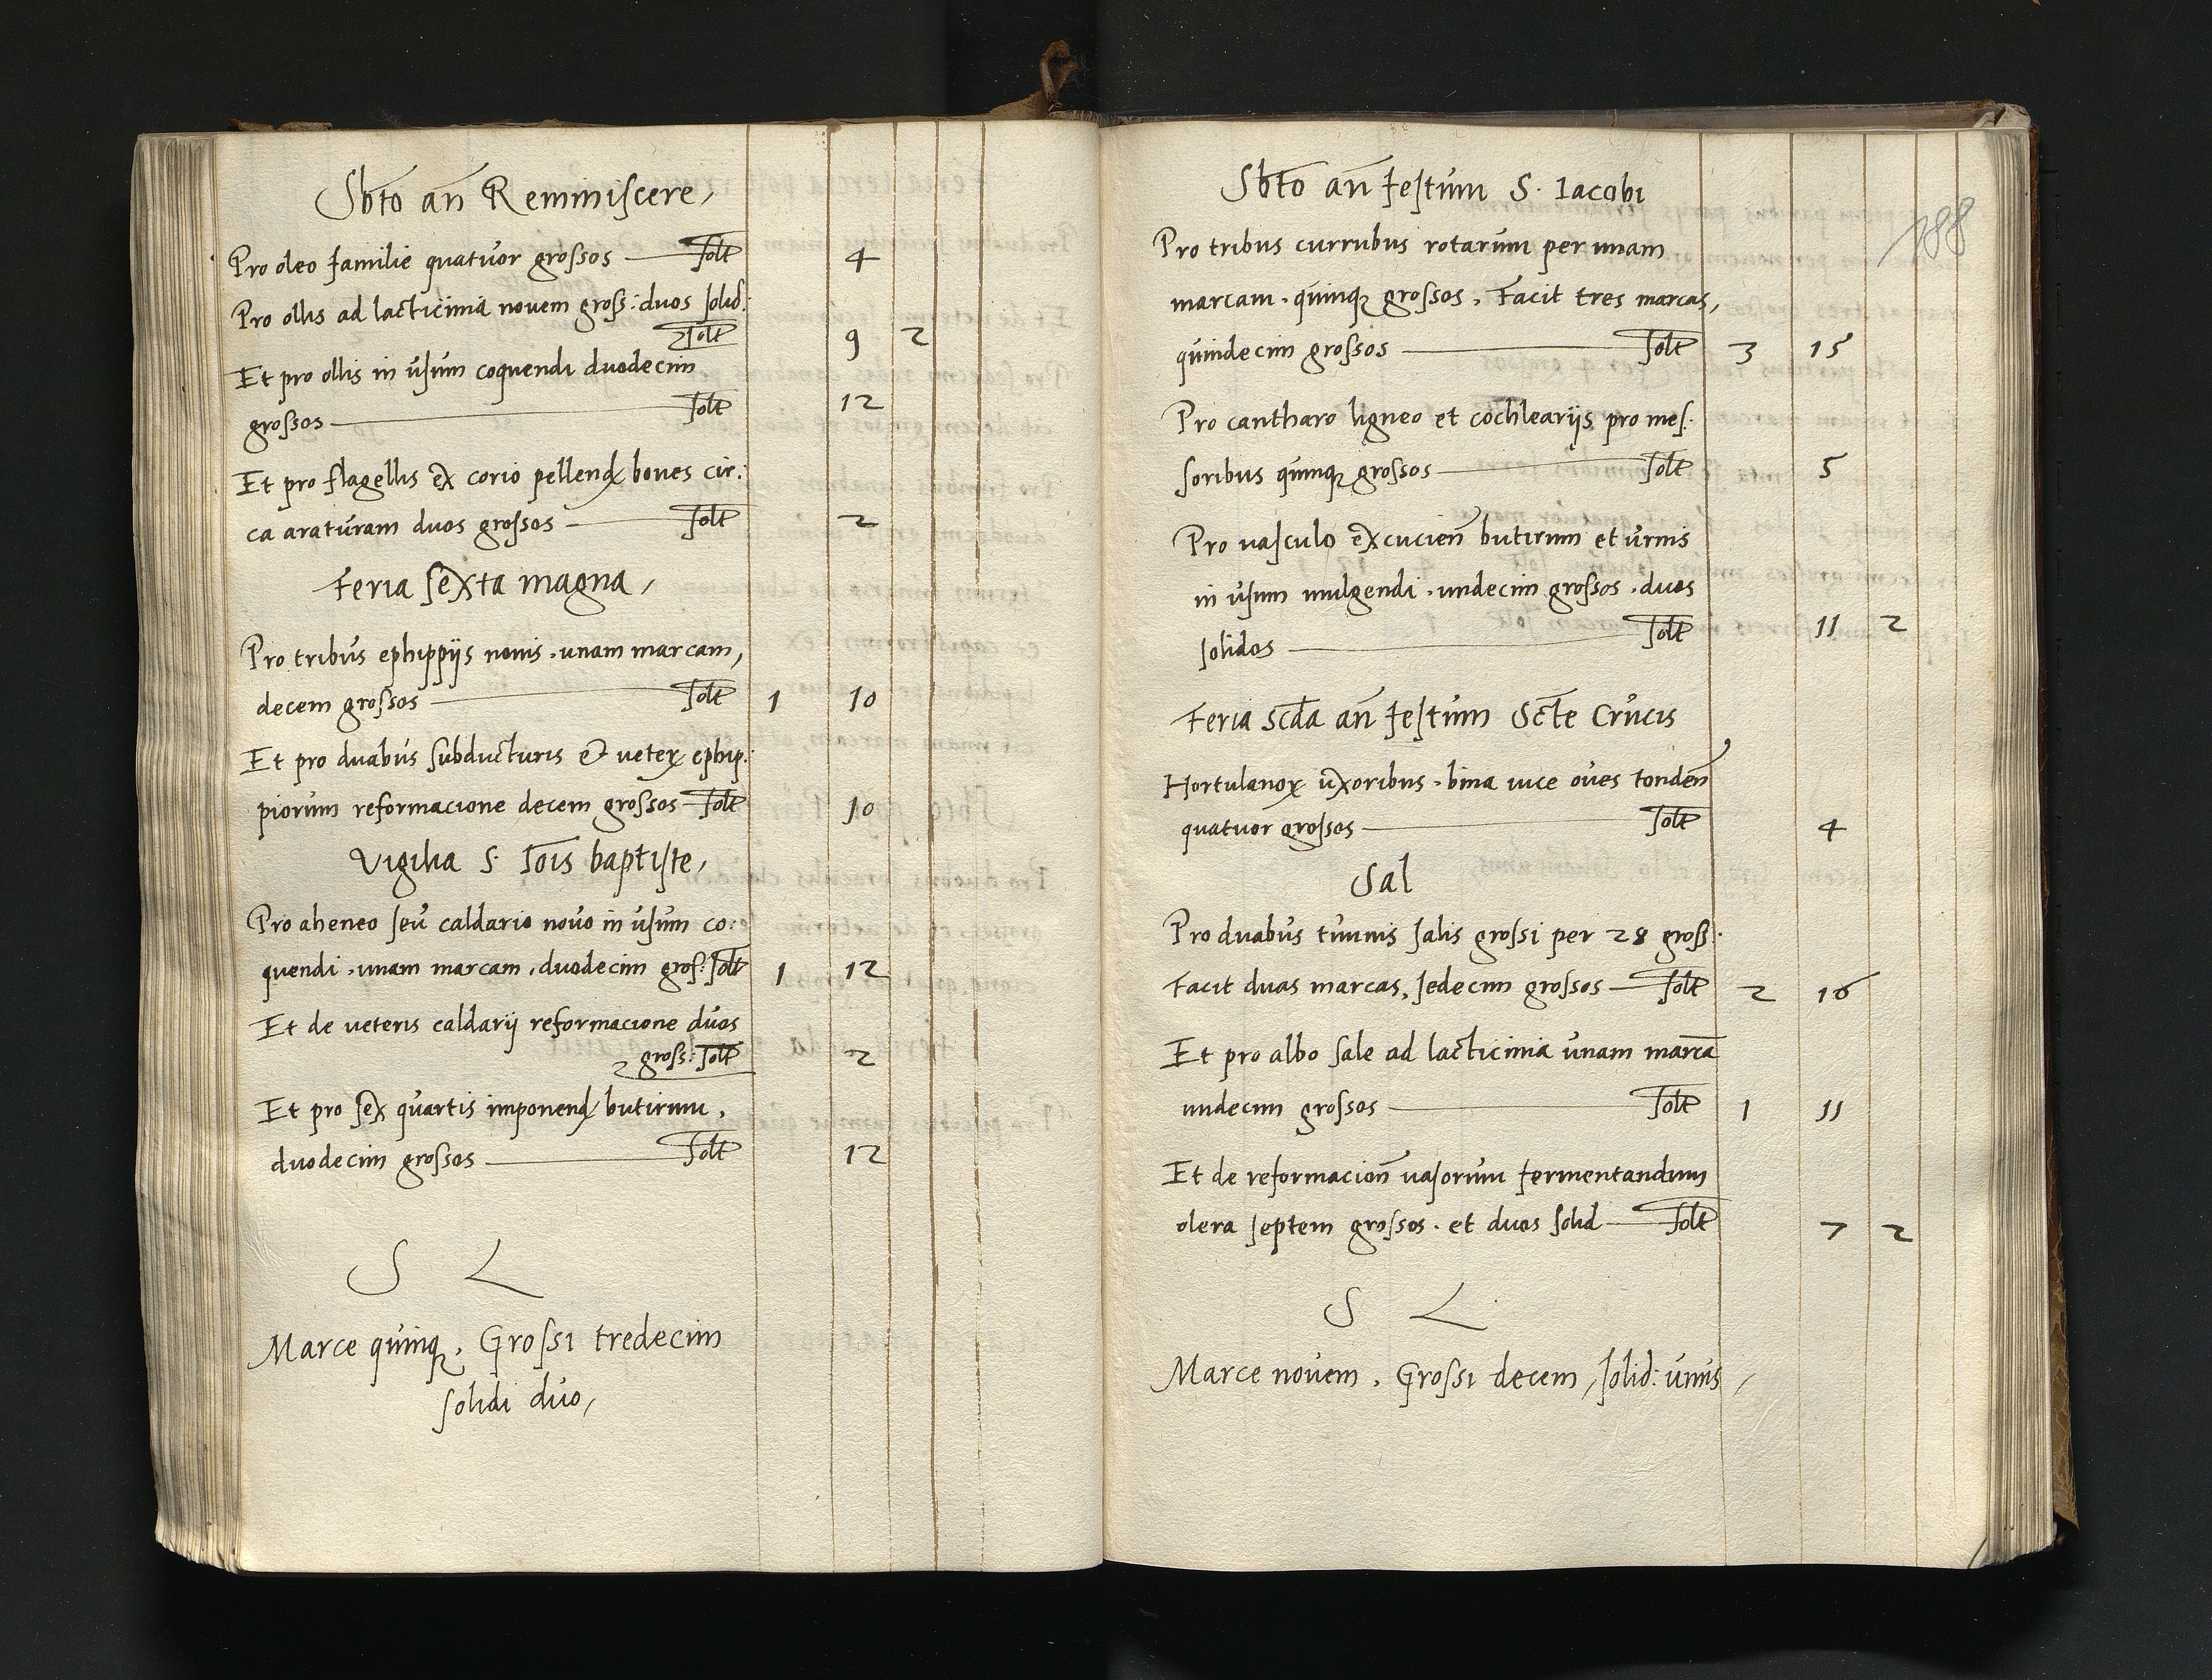 Sbto an Reminiscere,
Pro oleo familie quatuor grossos — solt 4
Pro ollis ad lacticinia novem gross: duos solid:
solt 9 2
Et pro ollis in usum coquendi duodecim
grossos — solt 12
Et pro flagellis ex corio pellend boves cir:
ca araturam duos grossos — solt 2
Feria sexta magna,
Pro tribus ephippijs novis . unam marcam,
decem grossos — solt 1 10
Et pro duabus subducturis & veterꝝ ephip:
piorum reformacione decem grossos — solt 10
Vigilia S. Iois baptiste,
Pro aheneo seu caldario novo in usum co:
quendi . unam marcam, duodecim gros: solt 1 12
Et de veteris caldarij reformacione duos
gross: solt 2
Et pro sex quartis imponend butirum,
duodecim grossos — solt 12
S L
Marce quinqꝫ. Grossi tredecim
solidi duo,
188
Sbto an festum S. Iacobi
Pro tribus curribus rotarum per unam
marcam . quinqꝫ grossos. Facit tres marcas,
quindecim grossos — solt 3 15
Pro cantharo ligneo et cochlearijs pro mes:
soribus quinqꝫ grossos — solt 5
Pro vasculo excucien butirum et urnis
in usum mulgendi . undecim grossos . duos
solidos — solt 11 2
Feria scda an festum Scte Crucis
Hortulanoꝝ uxoribus . bina vice oves tonden
quatuor grossos — solt 4
Sal
Pro duabus tunnis salis grossi per 28 gross.
Facit duas marcas, sedecim grossos — solt 2 16
Et pro albo sale ad lacticinia unam marcā
undecim grossos — solt 1 11
Et de reformacion vasorum fermentandum
olera septem grossos . et duos solid — solt 7 2
S L
Marce novem. Grossi decem, solid: unus,